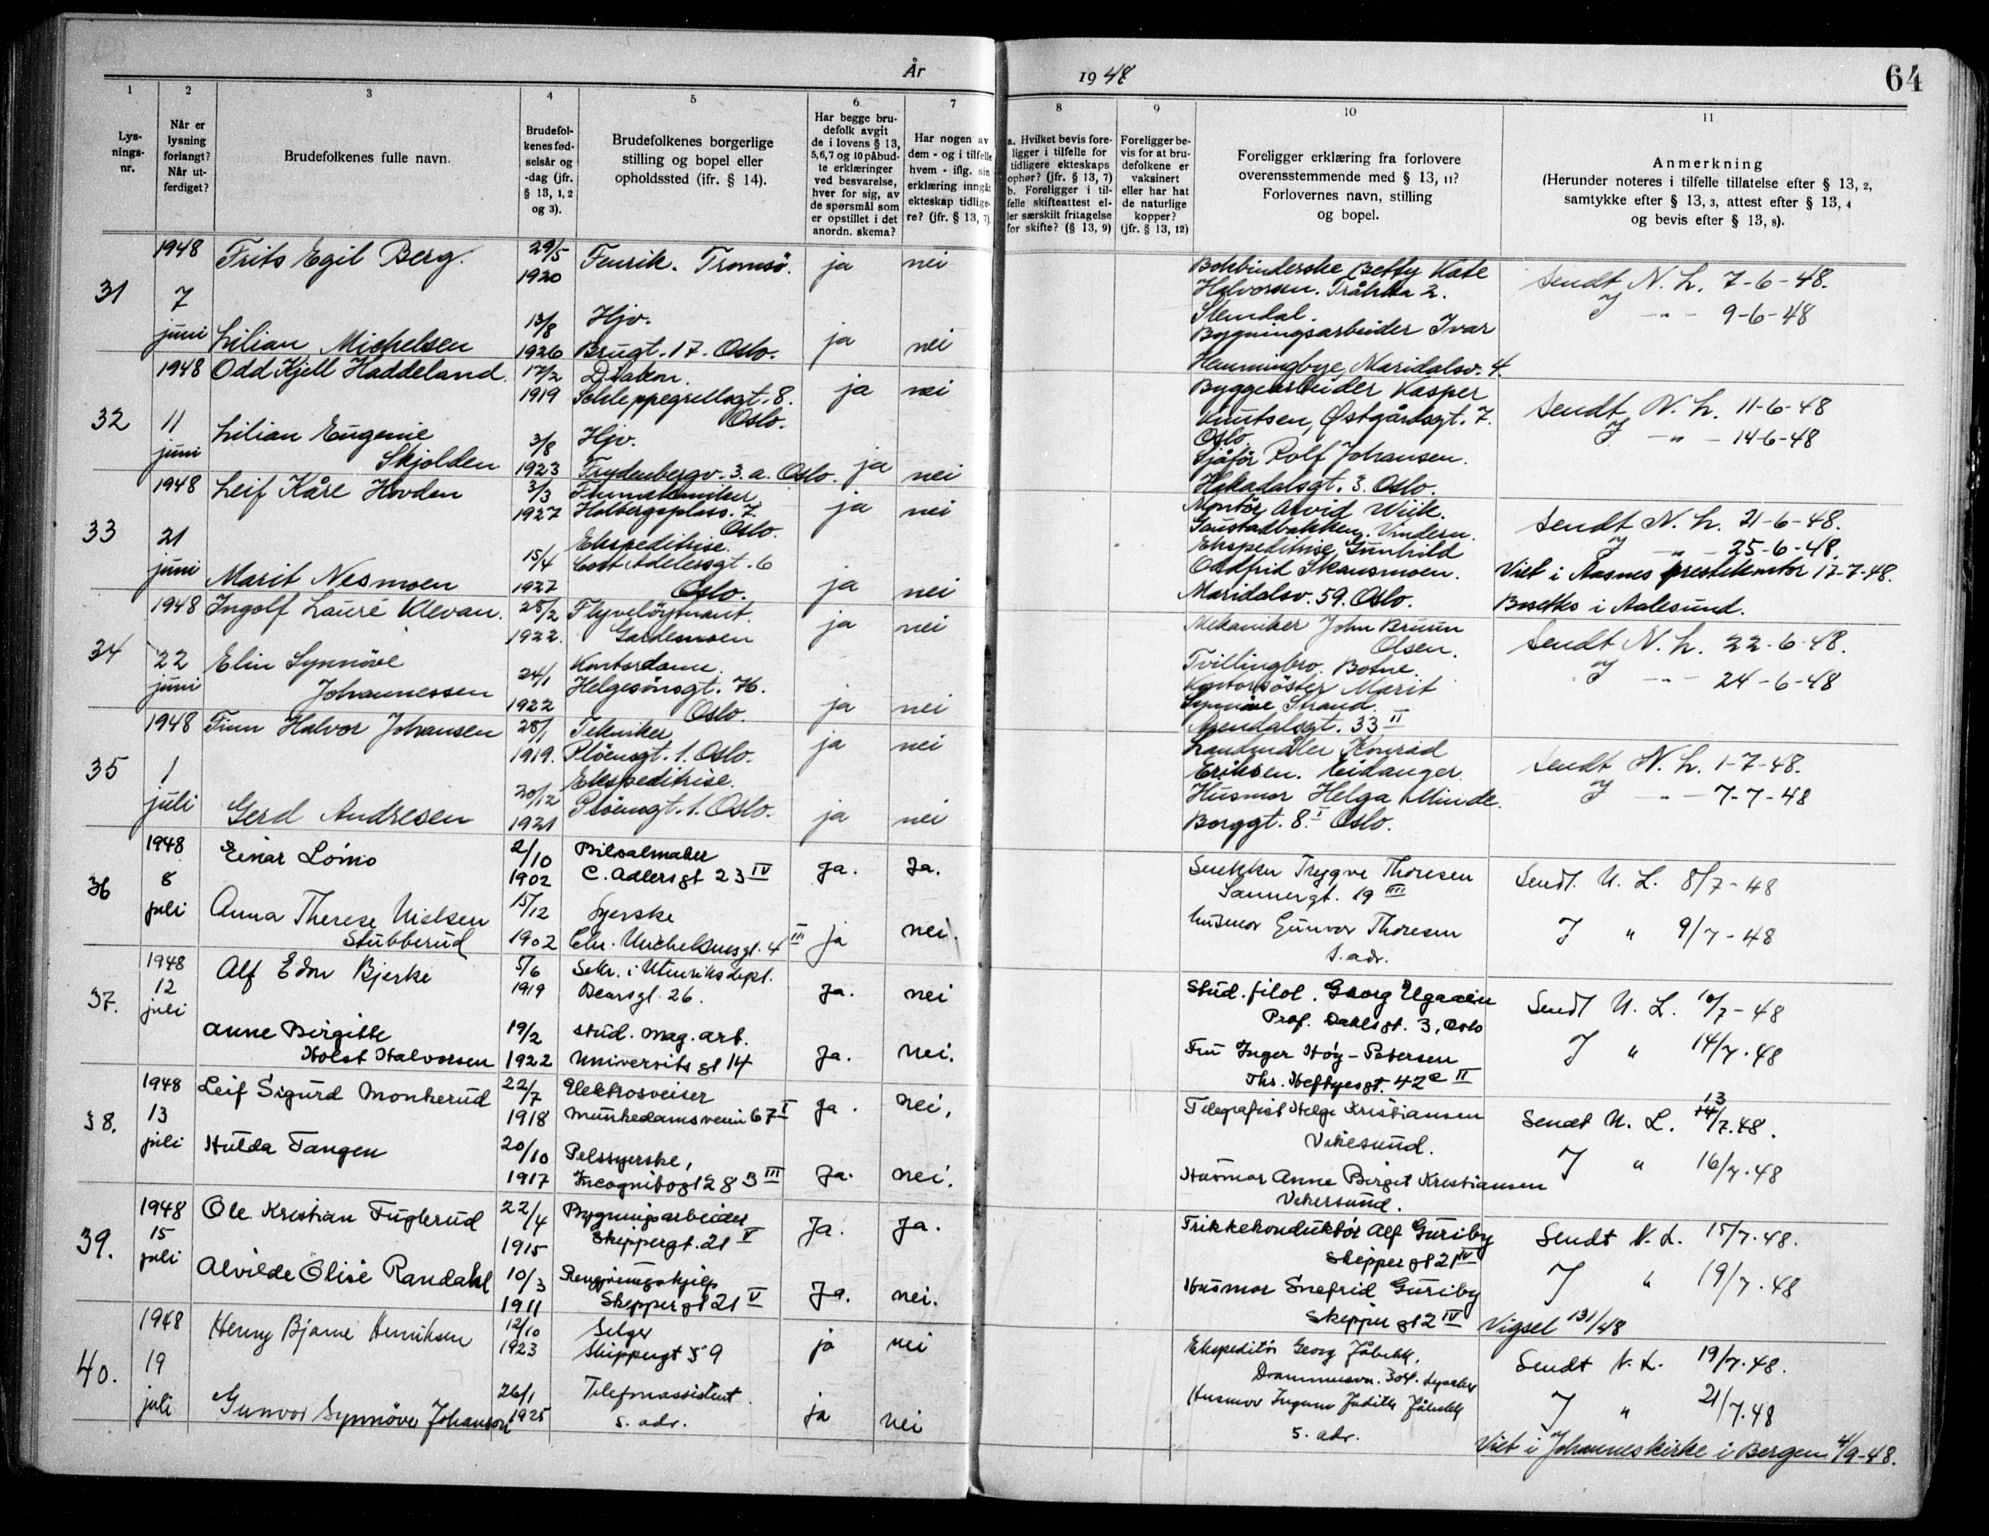 År 1948 64
1 2 3 4 5 6 7 8 9 10 11
Lys-
nings-
nr.
Når er
lysning
forlangt?
Når ut-
ferdiget?
Brudefolkenes fulle navn.
Brudefol-
kenes fød-
selsår og
-dag (jfr.
§ 13, 1, 2
og 3).
Brudefolkenes borgerlige
stilling og bopel eller
opholdssted (ifr. § 14).
Har begge bru-
defolk avgit
de i lovens § 13,
5,6,7 og 10 påbud-
te erklæringer
ved besvarelse,
hver for sig, av
de spørsmål som
er opstillet i det
anordn. skema?
Har nogen av
dem - og i tilfelle
hvem - iflg. sin
erklæring inngåt
ekteskap tidlige-
re? (jfr. § 13, 7).
a. Hvilket bevis fore-
ligger i tilfelle for
tidligere ekteskaps
ophør? (jfr. § 13, 7)
b. Foreligger i til-
felle skifteattest el-
ler særskilt fritagelse
for skifte? (§ 13, 9)
Foreligger be-
vis for at bru-
defolkene er
vaksinert
eller har hat
de naturlige
kopper?
(jfr. § 13, 12)
Foreligger erklæring fra forlovere
overensstemmende med § 13, 11?
Forlovernes navn, stilling
og bopel.
Anmerkning
(Herunder noteres i tilfelle tillatelse efter § 13, 2,
samtykke efter § 13, 3, attest efter § 13, 4
og bevis efter § 13, 8).
31
1948
7
juni
Frits Egil Berg.
29/5
1920
Fenrik. Tromsö.
ja nei
Lilian Michelsen
13/8
1926
Hjv.
Brugt. 17. Oslo.
ja nei
Bokbinderske Betty Kate
Halvorsen. Tråkka 2.
Slemdal.
Bygningsarbeider Ivar
Hemmingbye, Maridalsv. 4.
Sendt N. L. 7-6-48.
J -"- 9-6-48
32
1948
11
juni
Odd Kjell Haddeland.
17/2
1919
Diakon.
Schleppegrellsgt. 8.
Oslo.
ja nei
Lilian Eugenie
Skjolden
3/8
1923
Hjv.
Frydenbergv. 3. a. Oslo.
ja nei
Byggearbeider Kasper
Knutsen, Østgårdsgt. 7.
Oslo.
Sjåför Rolf Johansen.
Hakadalsgt. 3. Oslo.
Sendt N. L. 11-6-48
J -"- 14-6-48
33
1948
21
juni
Leif Kåre Hovden
3/3
1927
Holbergsplass. 7.
Oslo.
ja nei
Marit Nesmoen
15/4
1927
Ekspeditrise.
Cort Adelersgt. 6
Oslo.
ja nei
Montör Arvid Wiik.
Gaustadbakken, Vindern.
Ekspeditrise Gunhild
Oddfrid Skansmoen.
Maridalsv. 59. Oslo.
Sendt N. L. 21-6-48.
J -"- 25-6-48.
Viet i Åasnes prestekontor 17-7-48.
Bosettes i Aalesund.
34
1948
22
juni
Ingolf Lauré Klevan.
28/2
1922.
Flyvelöytnant.
Gardemoen
ja nei
Elin Synnöve
Johannessen
24/1
1922
Kontordame.
Helgesensgt. 76.
Oslo.
ja nei
Mekaniker John Bruun
Olsen.
Tvillingbro. Botne.
Kontorsöster Marit
Synnöve Strand.
Arendalsgt. 33 II
Sendt N. L. 22-6-48.
J -"- 24-6-48
35
1948
1
juli
Finn Halvor Johansen
28/1
1919.
Tekniker
Plöensgt. 1. Oslo.
ja nei
Gerd Andresen
20/12
1921
Ekspeditrise.
Plöensgt. 1. Oslo.
ja nei
Landmåler Konrad
Eriksen. Eidanger.
Husmor Helga Minde.
Borggt. 8. I Oslo.
Sendt N. L. 1-7-48.
J -"- 7-7-48
36
1948
8
juli
Einar Lömo
2/10
1902
Bilsalmaker
C. Adlersgt 23 IV
Ja. Ja.
Anna Therese Nielsen
Stubberud
15/12
1902
Syerske
Chr. Michelsensgt. 4 III
ja nei.
Snekker Trygve Thoresen
Sannergt. 19 III
husmor Gunvor Thoresen
s. adr.
Sendt. N. L. 8/7-48
J " 9/7-48
37.
1948
12
juli
Alf Edv Bjerke
5/6
1919
Sekr. i Utenriksdept.
26.
Ja. nei
Anne Birgitte
Holst Halvorsen
19/2
1922
stud. mag. art.
Universitsgt 14
Ja. nei.
Stud. filol. Georg
Prof. Dahlsgt. 3, Oslo
Fru Inger Höy-Petersen
Thr. Heftyesgt. 42 c II
Sendt N. L. /7-48
J " 14/7.48
38.
1948
13
juli
Leif Sigurd Monkerud
22/7
1918
Elektrosveiser
Munkedamsveien 67 I
Ja. nei.
Hulda Tangen
20/10
1917
Pelssyerske,
Incognitogt 28 B III
Ja. nei.
Telegrafist Helge Kristiansen
Vikesund.
Husmor Anne Birgit Kristiansen
Vikersund.
Sendt N. L. 13/7.48.
J " 16/7.48
39.
1948
15
juli
Ole Kristian Fuglerud
22/4
1915
Bygningsarbeider
Skippergt. 21 V
Ja. Ja.
Alvilde Olise Randahl
10/3
1911
Rengjöringshjelp
Skippergt 21 V
Ja. nei.
Trikkekonduktör Alf Guriby
Skippergt 21 IV
Husmor Snefrid Guriby
Skippergt 2 IV
Sendt N. L. 15/7.48.
J " 19/7.48
Vigsel 131/48
40.
1948
19
juli
Henry Bjarne Henriksen
12/10
1923
Selger
Skippergt 59
ja nei
Gunvor Synnöve Johansen
26/1
1925
Telefonassistent.
s. adr.
ja nei
Ekspeditör Georg
Drammensvn. 304. Lysaker
Husmor Ingunn Judith
s. adr.
Sendt N. L. 19/7.48.
J " 21/7.48
Viet i Johanneskirke i Bergen 4/9-48.